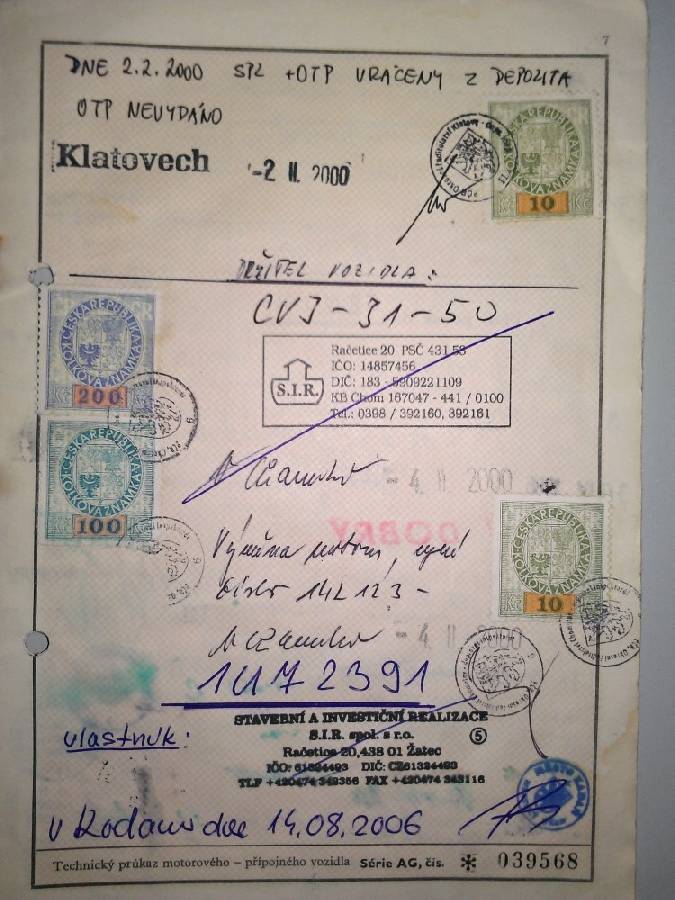 7
DNE 2.2.2000 SPZ + OTP VRÁCENY Z DEPOZITA
OTP NEVYDÁNO
Klatovech -2 II. 2000
ČESKÁ REPUBLIKA
KOLKOVÁ ZNÁMKA
Kč 10 Kč
DRŽITEL VOZIDLA:
CVJ-31-50
ČESKÁ REPUBLIKA
KOLKOVÁ ZNÁMKA
200
S.I.R.
Račetice 20 PSČ 431 53
IČO: 14857456
DIČ: 183 - 5909221109
KB Chom 167047 - 441 / 0100
Tel.: 0398 / 392160, 392161
ČESKÁ REPUBLIKA
KOLKOVÁ ZNÁMKA
100
- 4. II 2000
DOBEY
Výměna motoru, nyní
číslo 142123-
ČESKÁ REPUBLIKA
KOLKOVÁ ZNÁMKA
Kč 10
- 4. II 2000
1U7 2391
STAVEBNÍ A INVESTIČNÍ REALIZACE
S.I.R. spol. s r.o. 5
Račetice 20, 438 01 Žatec
IČO: 61324493 DIČ: CZ61324493
TLF +420474 349356 FAX +420474 343116
vlastník:
V Kadani dne 14.08.2006
MĚSTO KADAŇ
Technický průkaz motorového – přípojného vozidla Série AG, čís. * 039568